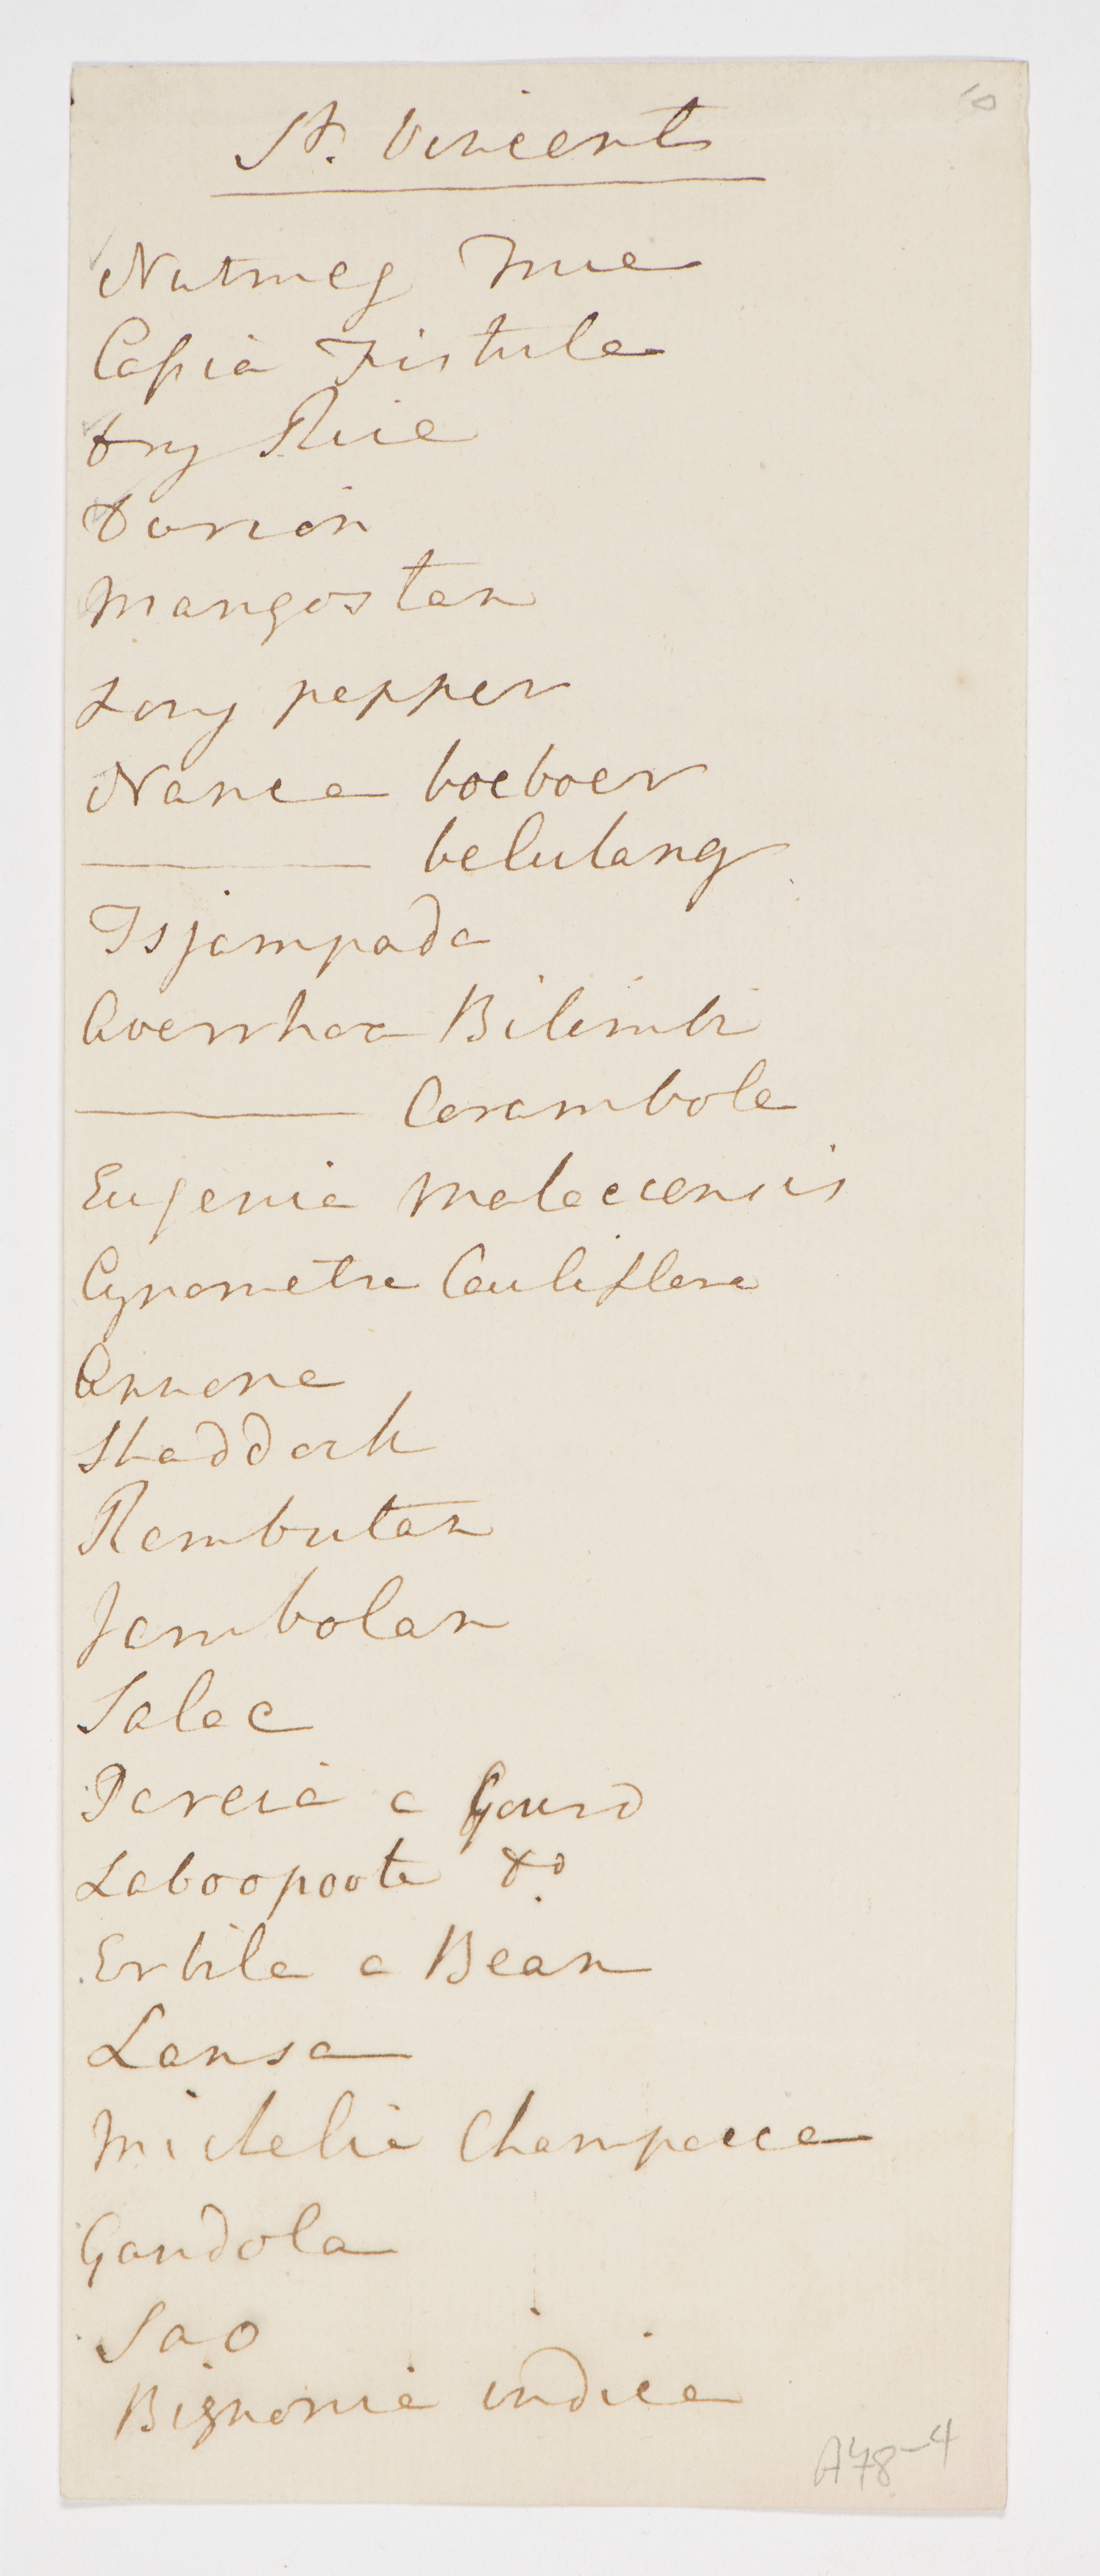 10
St. Vincents
Nutmeg True
Cassia Fistula
dry Rice
Dorian
Mangostan
Long pepper
Nanca boeboer
——— belulang
Tsjampada
Averrhoa Bilimbi
——— Carambola
Eugenia Malaccensis
Cynometra Cauliflora
Annona
Shaddock
Rambutan
Jambolan
Salac
Pareia a Gourd
Laboopoote Do.
Erbila a Bean
Lansa
Michelia Champacca
Gandola
Sao
Bignonia indica
A78-4